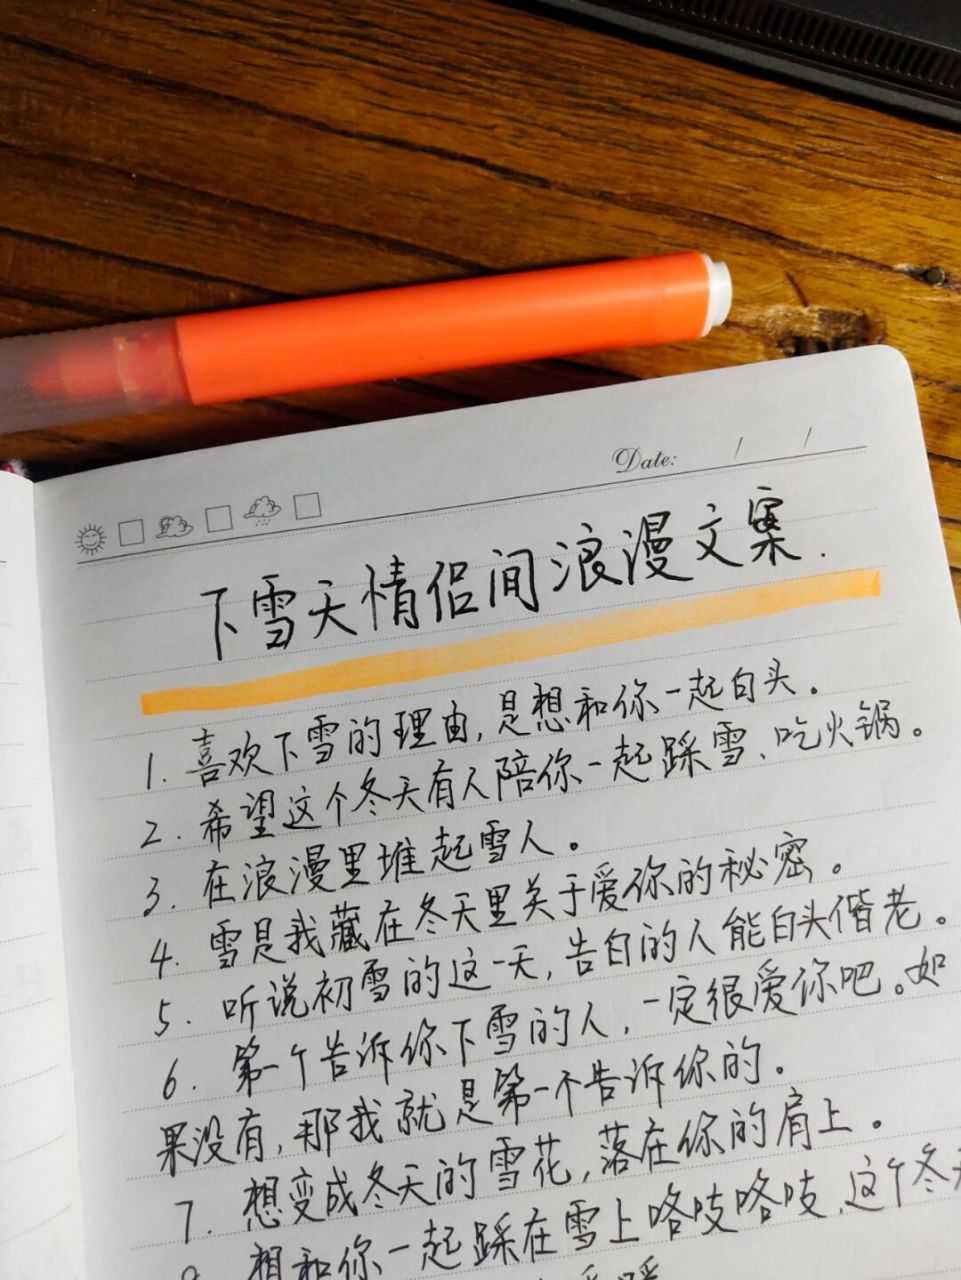 Date: / /
下雪天情侣间浪漫文案.
1. 喜欢下雪的理由,是想和你一起白头。
2. 希望这个冬天有人陪你一起踩雪、吃火锅。
3. 在浪漫里堆起雪人。
4. 雪是我藏在冬天里关于爱你的秘密。
5. 听说初雪的这一天,告白的人能白头偕老。
6. 第一个告诉你下雪的人,一定很爱你吧。如
果没有,那我就是第一个告诉你的。
7. 想变成冬天的雪花,落在你的肩上。
想和你一起踩在雪上咯吱咯吱,这个冬